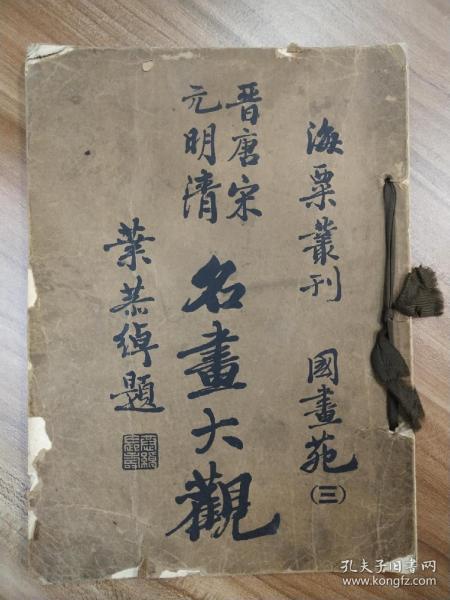 海粟叢刊 國畫苑(三)
晋唐宋
元明清
名畫大觀
葉恭綽題
孔夫子旧书网
www.kongfz.com